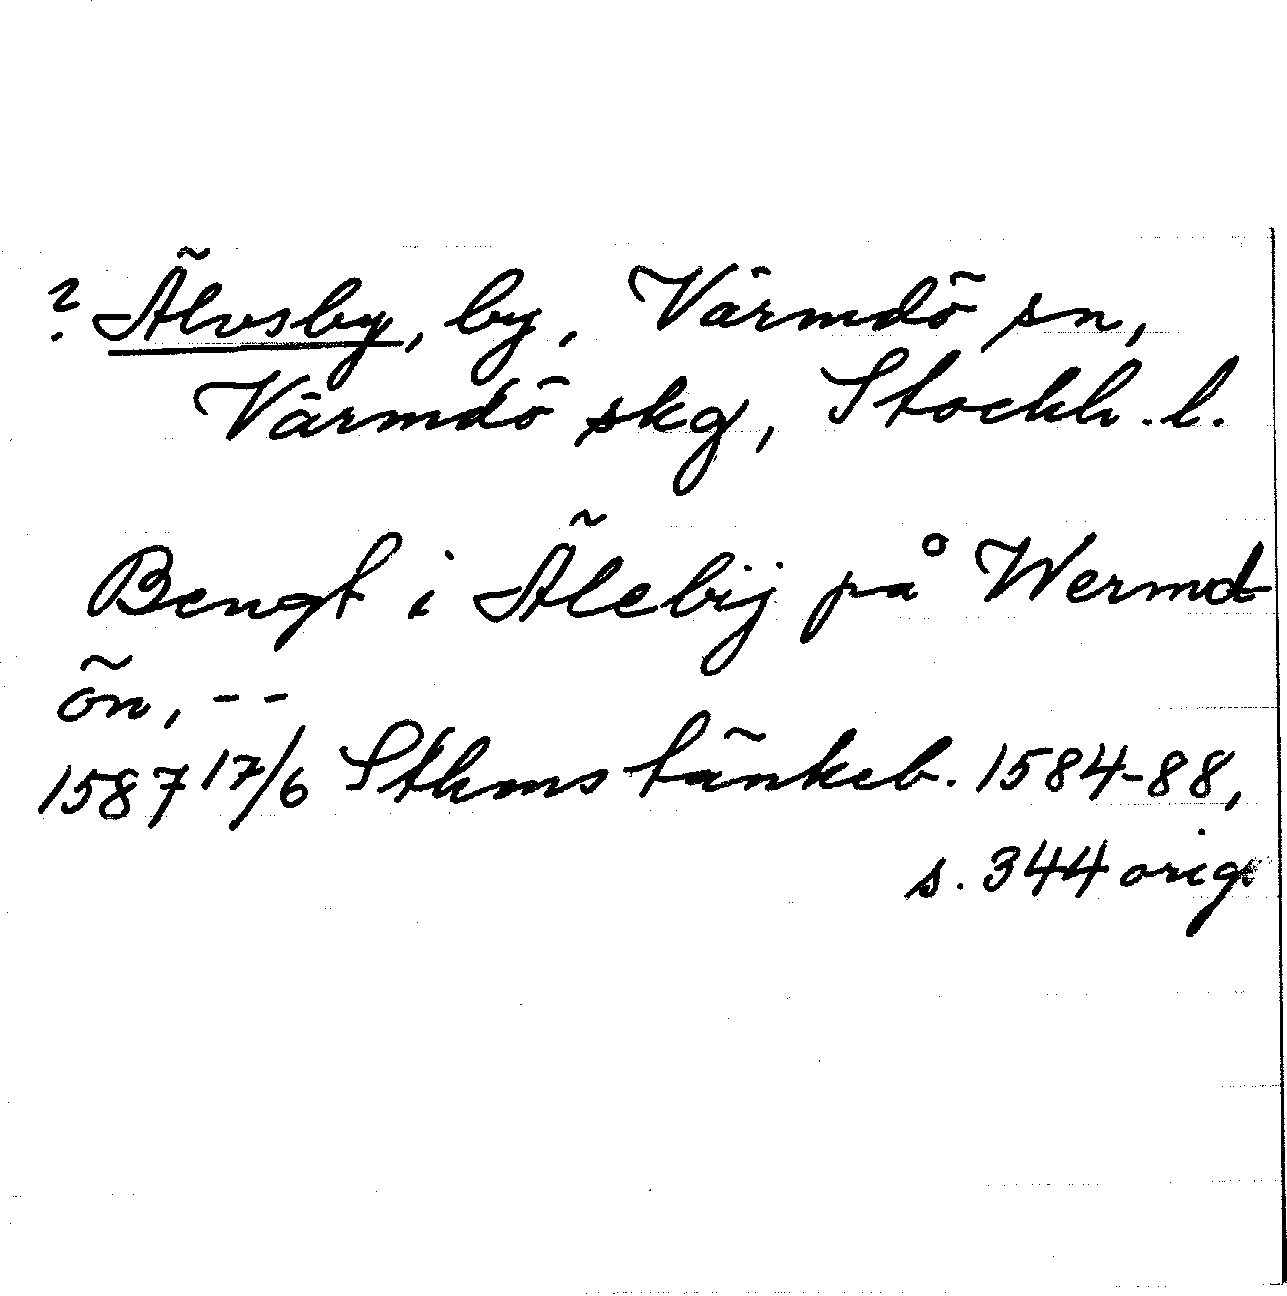 ? Älvsby, by, Värmdö sn,
Värmdö skg, Stockh. l.
Bengt i Älebij på Wermd
ön, --
1587 17/6 Sthms tänkeb. 1584-88,
s. 344 orig.